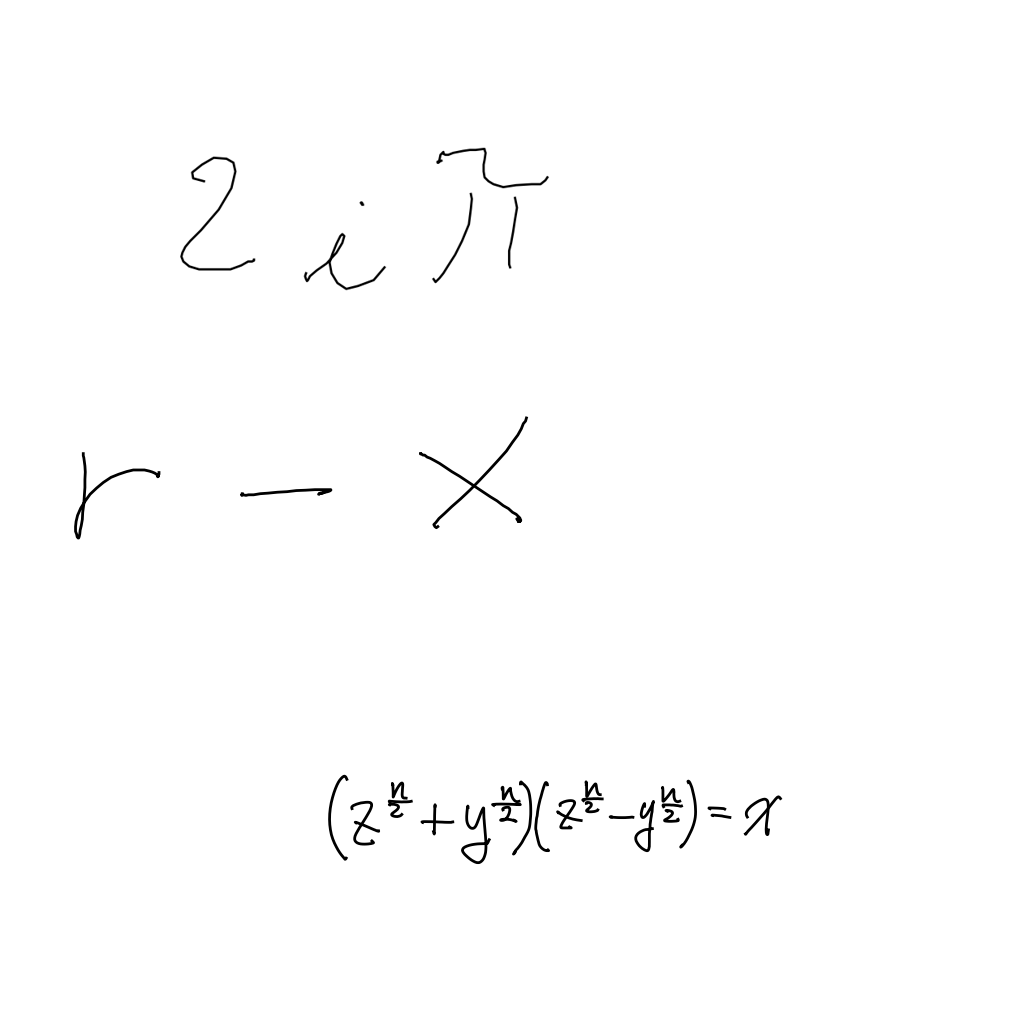 2iπ
r - x
(z^{n/2} + y^{n/2})(z^{n/2} - y^{n/2}) = x